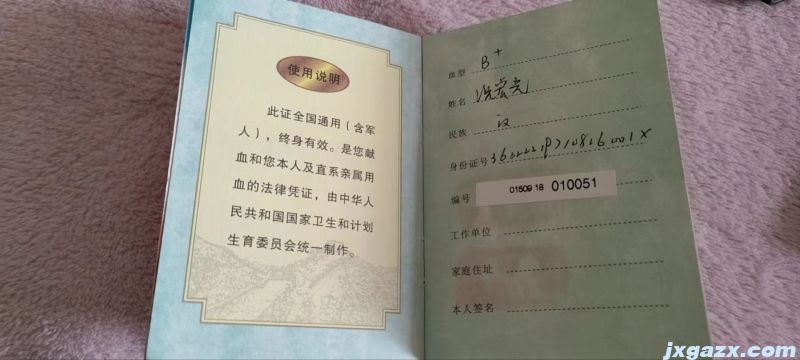 使用说明
此证全国通用（含军
人），终身有效。是您献
血和您本人及直系亲属用
血的法律凭证，由中华人
民共和国国家卫生和计划
生育委员会统一制作。
血型 B+
姓名
民族 汉
身份证号
编号 01509 18 010051
工作单位
家庭住址
本人签名
jxgazx.com